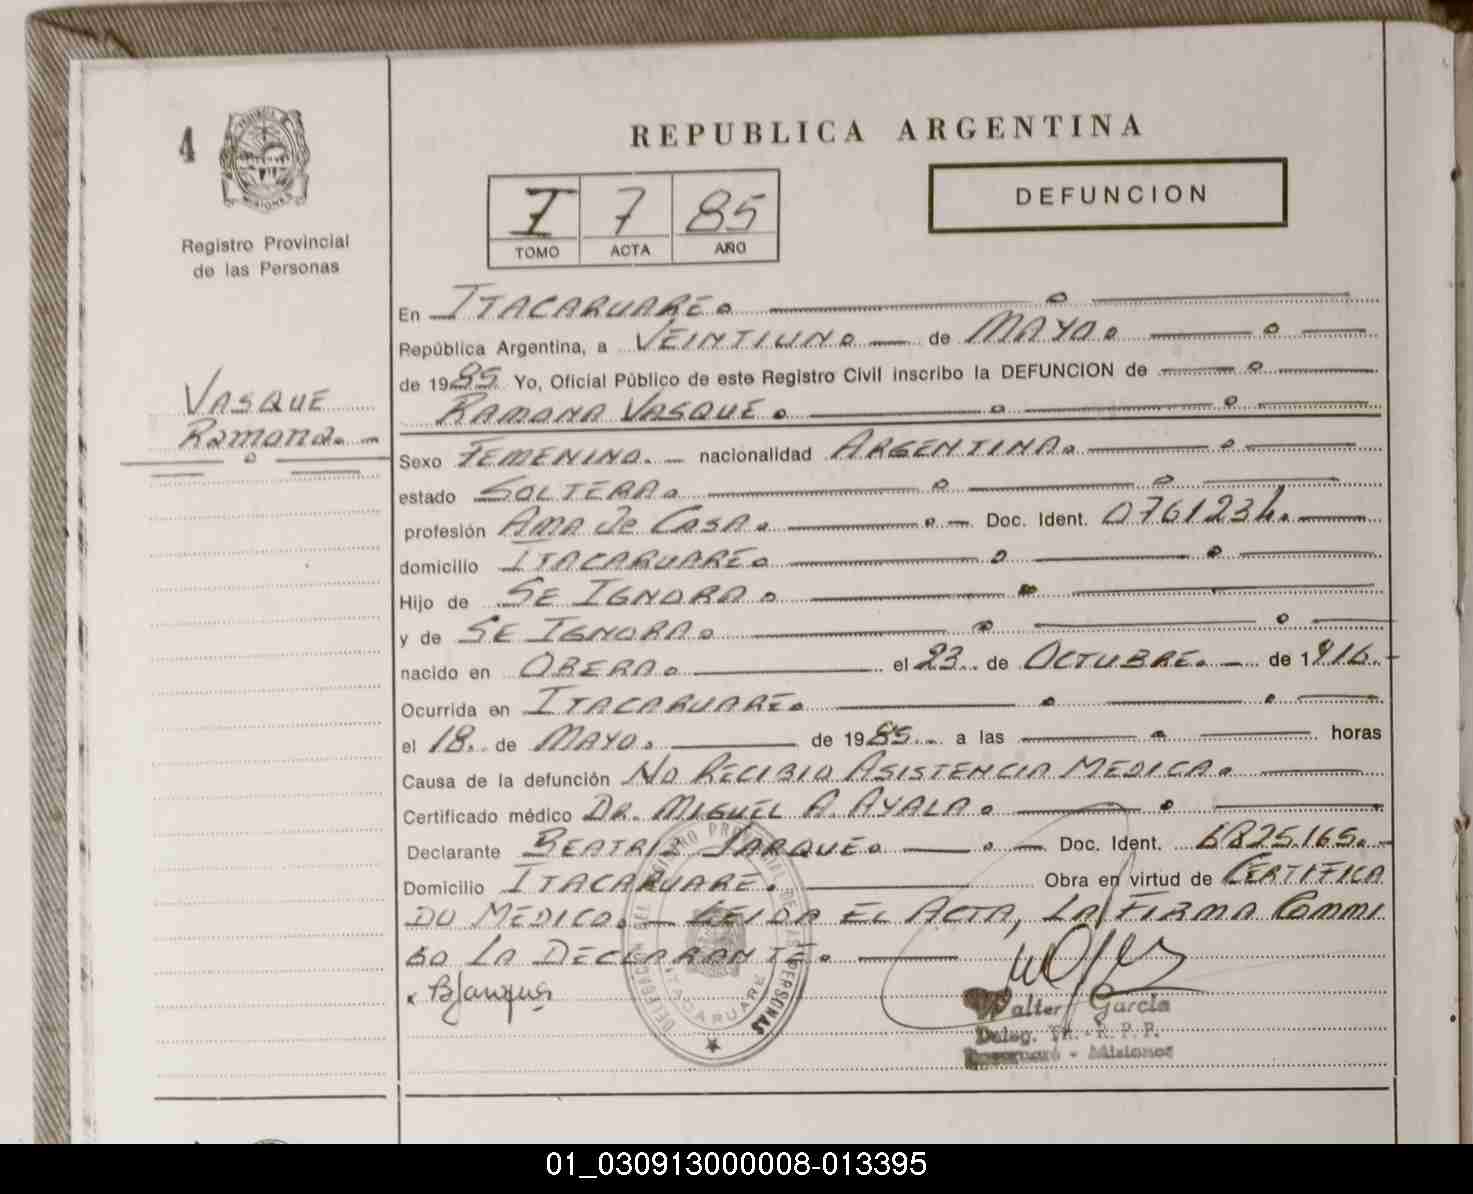 4
Registro Provincial
de las Personas
VASQUE
Ramona.
REPUBLICA ARGENTINA
I 7 85
TOMO ACTA AÑO
DEFUNCION
En ITACARUARE.
República Argentina, a VEINTIUNO de MAYO.
de 1985. Yo, Oficial Público de este Registro Civil inscribo la DEFUNCION de
RAMONA VASQUE.
Sexo FEMENINO. nacionalidad ARGENTINA.
estado SOLTERA.
profesión AMA de CASA. Doc. Ident. 0761234.
domicilio ITACARUARE.
Hijo de SE IGNORA.
y de SE IGNORA.
nacido en OBERA. el 23. de OCTUBRE. de 1916.
Ocurrida en ITACARUARE.
el 18. de MAYO. de 1985. a las horas
Causa de la defunción NO RECIBIO ASISTENCIA MEDICA.
Certificado médico DR. MIGUEL A. AYALA.
Declarante BEATRIZ JARQUE. Doc. Ident. 6825.165.
Domicilio ITACARUARE. Obra en virtud de CERTIFICA
DO MEDICO. LEIDA EL ACTA, LA FIRMA CONMI
GO LA DECLARANTE.
x BJarque
DELEGACION DEL REGISTRO PROVINCIAL DE LAS PERSONAS
ITACARUARE
Walter García
Deleg. R. P. P.
Itacaruaré - Misiones
01_030913000008-013395